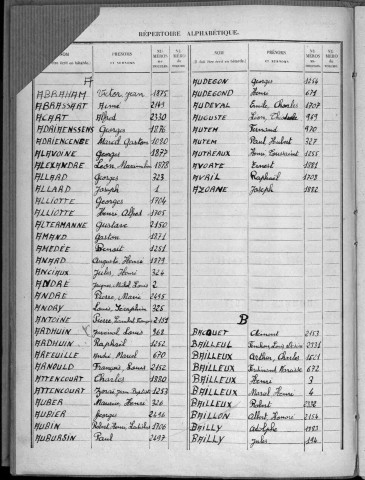 RÉPERTOIRE ALPHABÉTIQUE.
NOM
PRÉNOMS
ET SURNOMS
A
ABRAHAM Victor Jean 1875
ABRASSART Aimé 2149
ACHART Alfred 2330
ADRIAENSSENS Georges 1876
ADRIENCENCE Marcel Gaston
ALAVOINE Georges 1877
ALEXANDRE Léon Maximilien 1878
ALLARD Georges 323
ALLARD Joseph 1
ALLIOTTE Georges 1704
ALLIOTTE Henri Alfred 1705
ALTERMANNE Gustave 2150
AMAND Gaston 1271
AMEDÉE Benoit 1251
ANARD Auguste Henri 1879
ANCIAUX Jules, Henri 324
ANDRE Jacques Michel Louis 2
ANDRE Pierre, Marie 2495
ANDRY Louis, Seraphin 325
ANTOINE Pierre 2151
ARDHUIN Juvénal Louis 968
ARDHUIN Raphaël 1252
AREFUILLE André, Marcel 670
ARNOULD François, Louis 2152
ATTENCOURT Charles 1880
ATTENCOURT Baptiste 1253
AUBER Maurice, Henri 326
AUBIER Georges 2496
AUBIN Robert Henri 1706
AUBURSIN Paul 2497
AUDEGON Georges 1254
AUDEGOND Henri 671
AUDEVAL Emile, Charles 1707
AUGUSTE Léon 969
AUTEM Fernand 970
AUTEM Paul Hubert 327
AUTREAUX Henri Toussaint 1255
AVORTE Ernest 1881
AVRIL Raphaël 1708
AZORNE Joseph 1882
B
BACQUET Clément 2153
BAILLEUL
BAILLEUX Arthur, Charles
BAILLEUX Ferdinand 672
BAILLEUX Henri 3
BAILLEUX Marcel Henri 4
BAILLEUX Robert 2332
BAILLON Albert Honoré 2154
BAILLY Adolphe 1883
BAILLY Jules 194